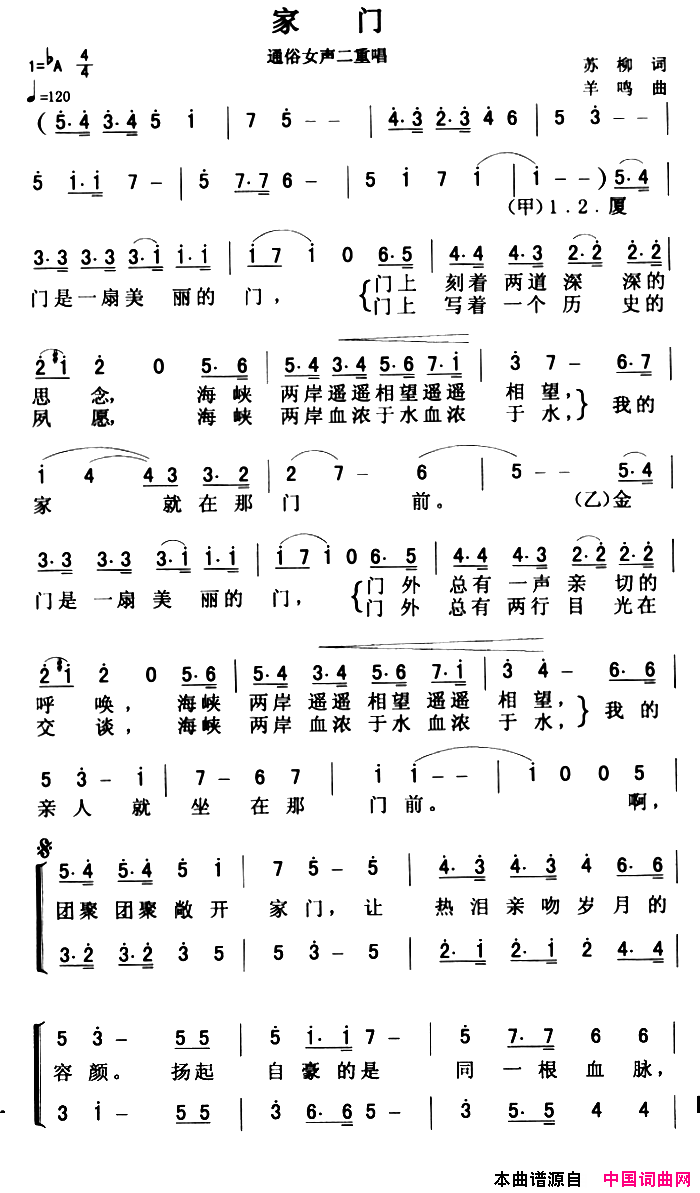 家 门
通俗女声二重唱
1=♭A 4/4
♩=120
苏 柳 词
羊 鸣 曲
(5·4 3·4 5 1 | 7 5 - - | 4·3 2·3 4 6 | 5 3 - -
5 1·1 7 - | 5 7·7 6 - | 5 1 7 1 | 1 - - ) 5·4
(甲)1.2.厦
3·3 3·3 3·1 1·1 | 1 7 1 0 6·5 | 4·4 4·3 2·2 2·2
门是一扇美 丽的 门, 门上 刻着 两道 深 深的
门上 写着 一个 历 史的
2 1 2 0 5·6 | 5·4 3·4 5·6 7·1 | 3 7 - 6·7
思 念, 海峡 两岸遥遥相望遥遥 相望, 我的
夙 愿, 海峡 两岸血浓于水血浓 于水,
1 4 4 3 3·2 | 2 7 - 6 | 5 - - 5·4
家 就在那 门 前。 (乙)金
3·3 3·3 3·1 1·1 | 1 7 1 0 6·5 | 4·4 4·3 2·2 2·2
门是一扇美 丽的 门, 门外 总有 一声 亲 切的
门外 总有 两行 目 光在
2 1 2 0 5·6 | 5·4 3·4 5·6 7·1 | 3 4 - 6·6
呼 唤, 海峡 两岸 遥遥 相望 遥遥 相望, 我的
交 谈, 海峡 两岸 血浓 于水 血浓 于水,
5 3 - 1 | 7 - 6 7 | 1 1 - - | 1 0 0 5
亲人 就 坐 在那 门前。 啊,
5·4 5·4 5 1 | 7 5 - 5 | 4·3 4·3 4 6·6
团聚 团聚 敞开 家门, 让 热泪亲吻岁月的
3·2 3·2 3 5 | 5 3 - 5 | 2·1 2·1 2 4·4
5 3 - 5 5 | 5 1·1 7 - | 5 7·7 6 6
容颜。 扬起 自豪的是 同一根血脉,
3 1 - 5 5 | 3 6·6 5 - | 3 5·5 4 4
本曲谱源自 中国词曲网